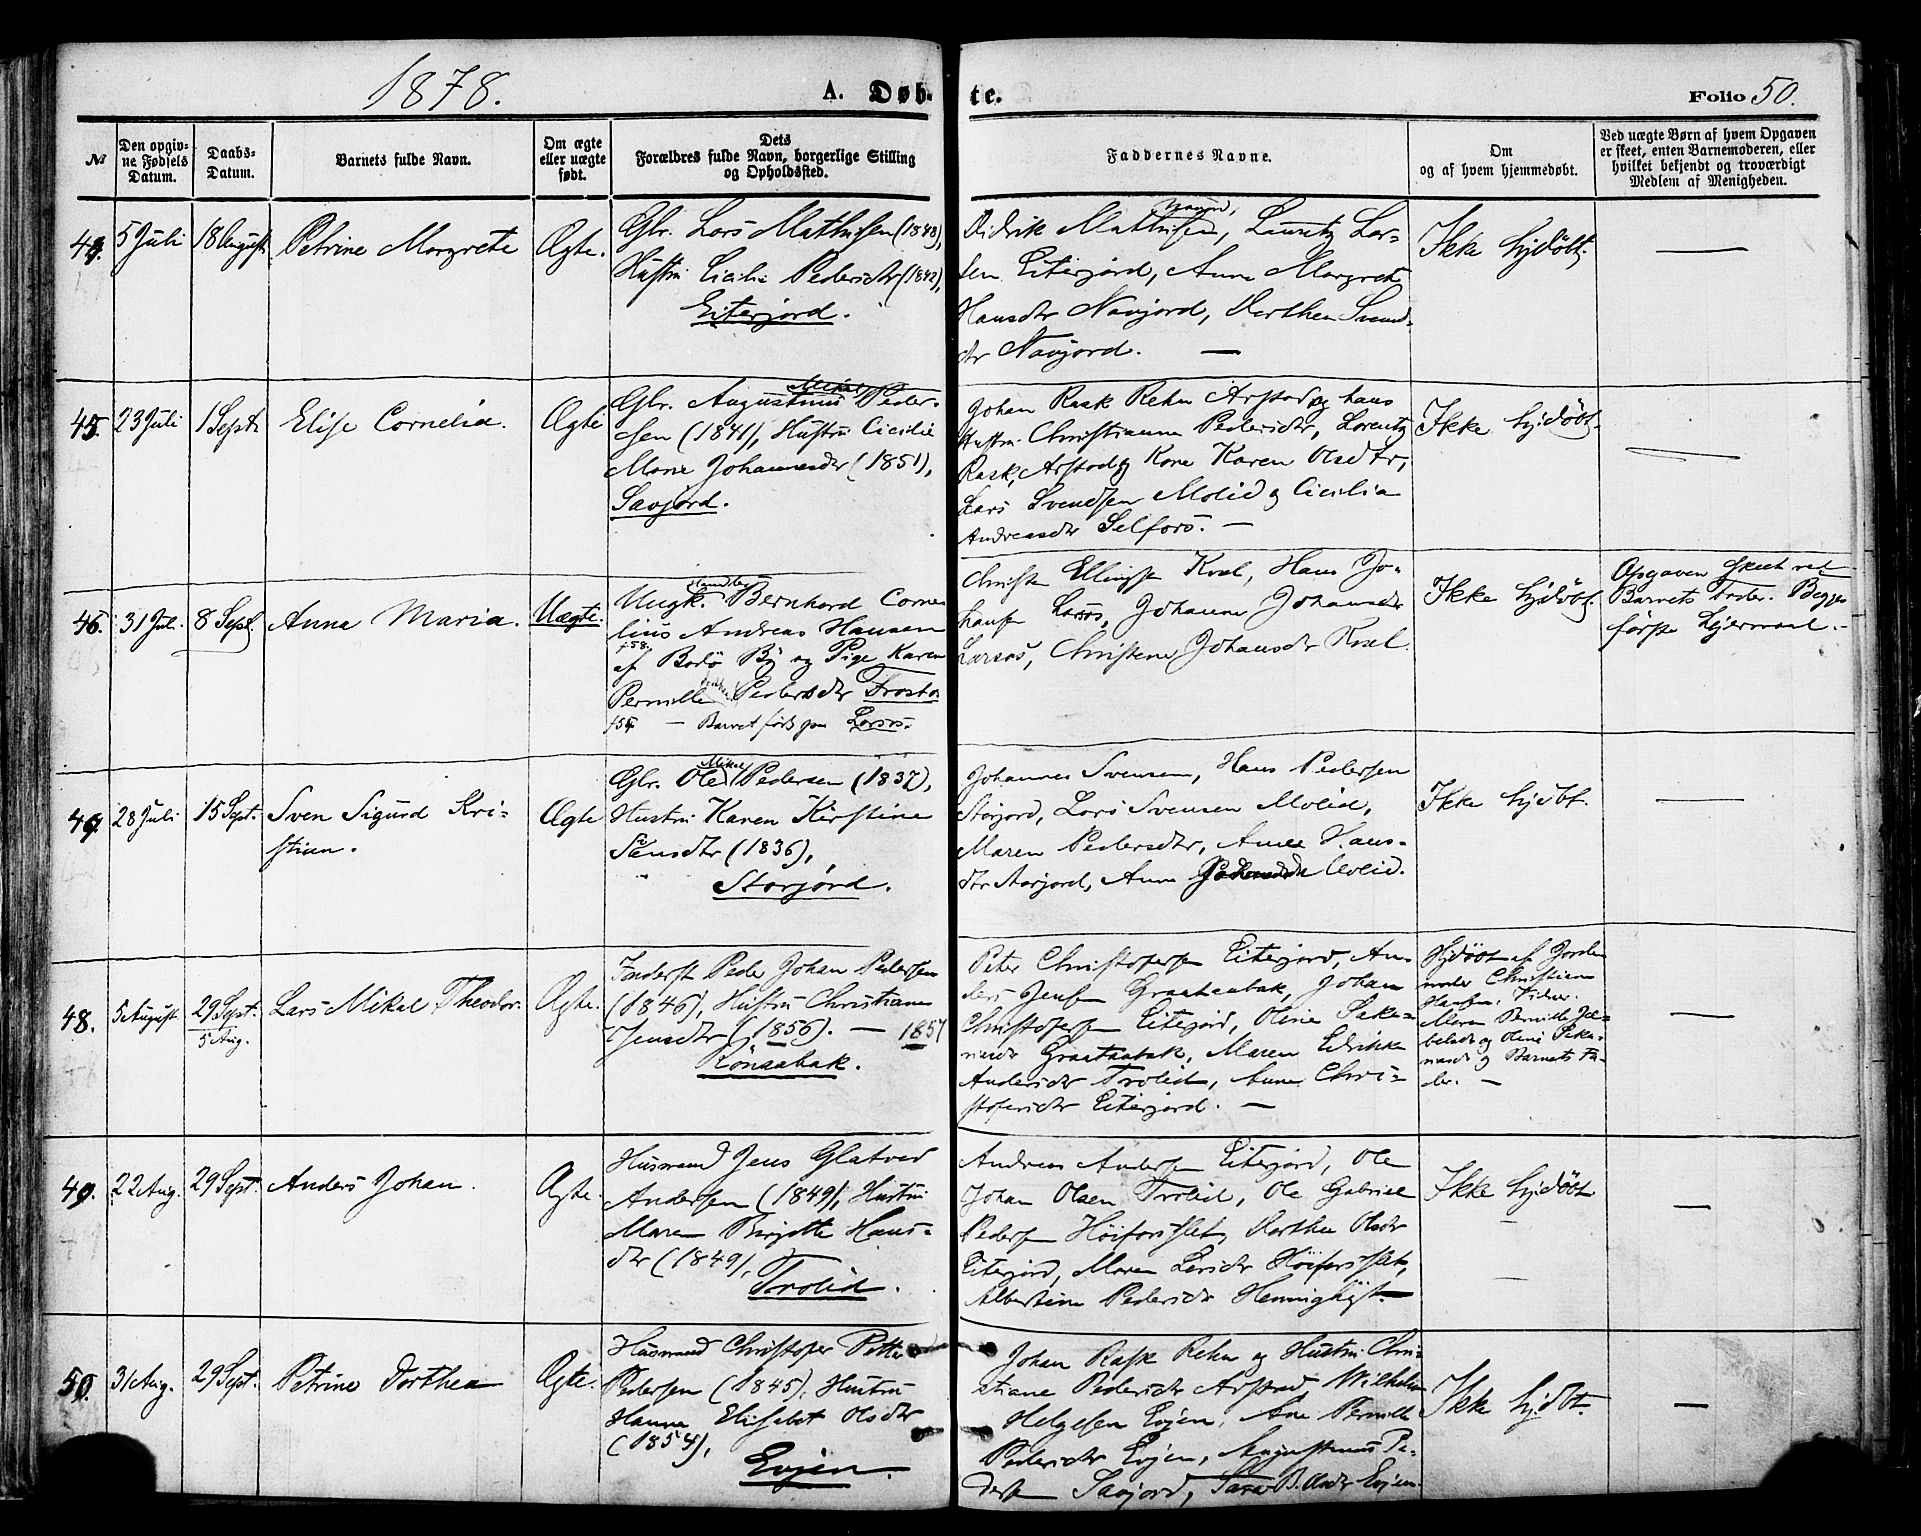 1878.
A. Døb-
te.
Folio 50.
№
Den opgiv-
ne Fødsels
Datum.
Daabs-
Datum.
Barnets fulde Navn.
Om ægte
eller uægte
født.
Dets
Forældres fulde Navn, borgerlige Stilling
og Opholdssted.
Faddernes Navne.
Om
og af hvem hjemmedøbt.
Ved uægte Børn af hvem Opgaven
er skeet, enten Barnemoderen, eller
hvilket bekjendt og troværdigt
Medlem af Menigheden.
44.
5 Juli
18 August
Petrine Margrete
Ægte.
Gbr. Lars Mathisen (1848),
Hustru Cicilie Pedersdtr (1842),
Eiterjord.
Didrik Mathisen, Lauritz Lar-
sen Eiterjord, Anne Margrete
Hansdtr Navjord, Dorthea Svends-
dtr Navjord. —
Ikke hjdøbt.
—
45.
23 Juli
1 Septr
Elise Cornelia.
Ægte
Mikal
Gbr. Augustinus Peder-
sen (1841), Hustru Cicilie
Marie Johannesdtr (1851),
Savjord.
Johan Rask Rehn Arstad og hans
Hustru Christianne Pedersdtr, Lorentz
Rask, Arstad og Kone Karen Olsdtr,
Lars Svendsen Molid og Cicilia
Andreasdtr Selfors. —
Ikke hjdøbt.
—
46.
31 Juli
8 Sept.
Anna Maria.
Uægte.
Ungk. Bernhard Corne-
lius Andreas Hansen
f 58
af Bodø By og Pige Karen
Pernille Pedersdtr Trosto
f 55 — Barnet født paa Larsos.
Christen Ellingsen Kvæl, Hans Jo-
hansen Larsos, Johanna Johansdtr
Larsos, Christene Johansdtr Kvæl.
Ikke hjdøbt.
Opgaven skeet ved
Barnets Fader. Begges
første Lejermaal. —
47.
28 Juli
15 Sept.
Sven Sigurd Kri-
stian.
Ægte
Mikal
Gbr. Ole Pedersen (1837),
Hustru Karen Kirstine
Svensdtr (1836),
Storjord.
Johannes Svensen, Hans Pedersen
Storjord, Lars Svensen Molid,
Maren Pedersdtr, Anne Hans-
dtr Storjord, Anne Molid.
Ikke hjdbt.
—
48.
5 August
29 Sept.
5 Aug.
Lars Mikal Theodor.
Ægte.
Inderst Peder Johan Pedersen
(1846), Hustru Christiane
Jensdtr (1856). — 1857
Rönaabak.
Peter Christofersen Eiterjord, An-
ders Jensen Graataabak, Johan
Christofersen Eiterjord, Oline Zaka-
riasdr Graataabak, Maren Edrikke
Andersdtr Trolid, Anne Chri-
stofersdtr Eiterjord. —
Hjdöbt af Jorde-
moder Christiane
Hansen. Vidner.
Maren Pernille
og Oline Zaka-
riasdr og Barnets Fa-
der. —
—
49.
22 Aug.
29 Sept.
Anders Johan.
Ægte.
Husmand Jens Glatved
Andersen (1849), Hustru
Maren Birgitte Hans-
dtr (1849),
Trolid.
Andreas Andersen Eiterjord, Ole
Johan Olsen Trolid, Ole Gabriel
Pedersen Höiforsslet, Dorthea Olsdtr
Eiterjord, Maren Larsdtr Höiforsslet,
Albertine Pedersdtr
Ikke hjdöbt
—
50.
31 Aug.
29 Sept.
Petrine Dorthea
Ægte.
Husmand Christofer Petter
Pedersen (1845), Hustru
Hanna Elisabet Olsdtr
(1854),
Evjen.
Johan Rask Rehn og Hustru Chri-
stiane Pedersdtr Arstad, Wilhelm
Helgesen Evjen, Ane Pernille
Pedersdtr Evjen, Augustinus Pe-
dersen Savjord, Sara B. Olsdtr Evjen.
Ikke hjdbt.
—